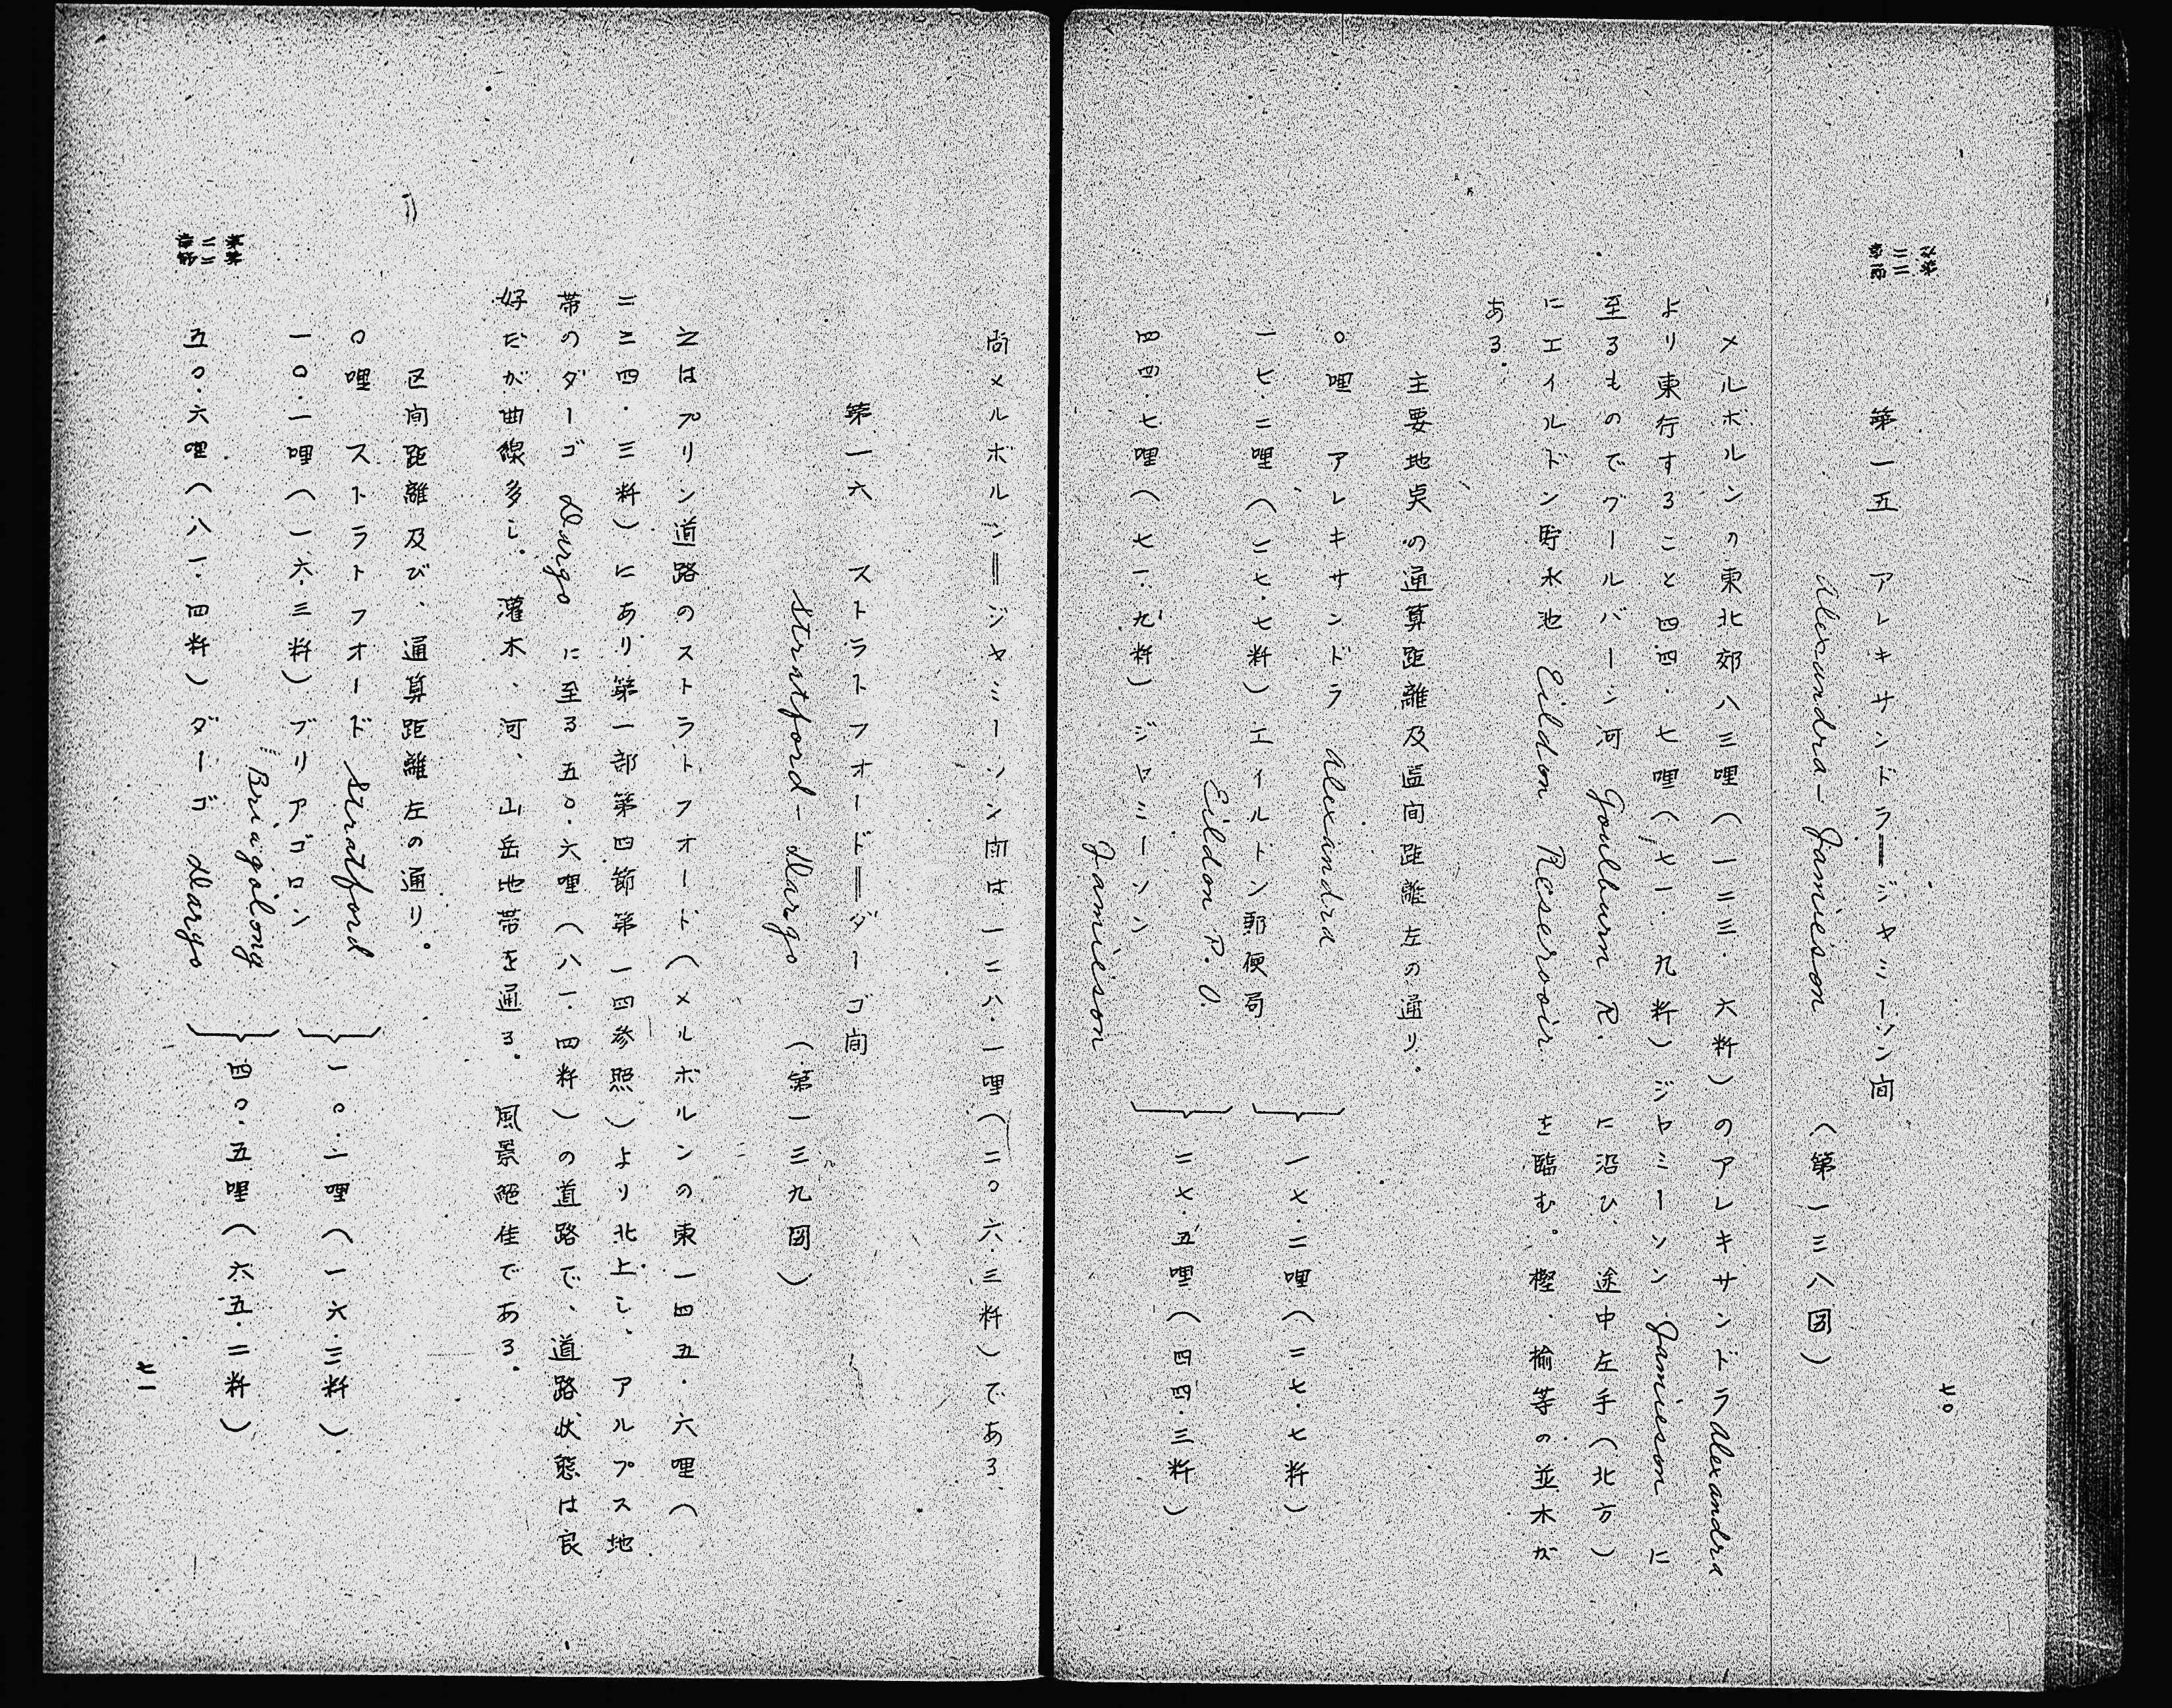 七〇
第一五　アレキサンドラ＝ジャミーソン間
Alexandra－Jamieson　（第一三八図）
メルボルンの東北郊八三哩（一三三．六粁）のアレキサンドラAlexandra
より東行すること四四．七哩（七一．九粁）ジャミーソンJamieson に
至るものでグールバーン河 Goulburn R. に沿ひ、途中左手（北方）
にエイルドン貯水池 Eildon Reservoir を臨む。樫、楡等の並木が
ある．
主要地点の通算距離及区間距離左の通り．
〇哩　アレキサンドラ Alexandra
一七．二哩（二七．七粁）エイルドン郵便局
Eildon P.O.
四四．七哩（七一．九粁）ジャミーソン
Jamieson
一七．二哩（二七．七粁）
二七．五哩（四四．三粁）
尚メルボルン＝ジャミーソン間は一二八．一哩（二〇六．三粁）である．
第一六　ストラトフオード＝ダーゴ間
Stratford－Dargo　（第一三九図）
之はプリン道路のストラトフオード（メルボルンの東一四五．六哩（
二三四．三粁）にあり第一部第四節第一四参照）より北上し、アルプス地
帯のダーゴ Dargo に至る五〇．六哩（八一．四粁）の道路で、道路状態は良
好だが曲線多し．灌木、河、山岳地帯を通る．風景絶佳である．
区間距離及び、通算距離左の通り。
〇哩　ストラトフオード Stratford
一〇．一哩（一六．三粁）ブリアゴロン
Briagolong
五〇．六哩（八一．四粁）ダーゴ Dargo
一〇．一哩（一六．三粁）
四〇．五哩（六五．二粁）
七一